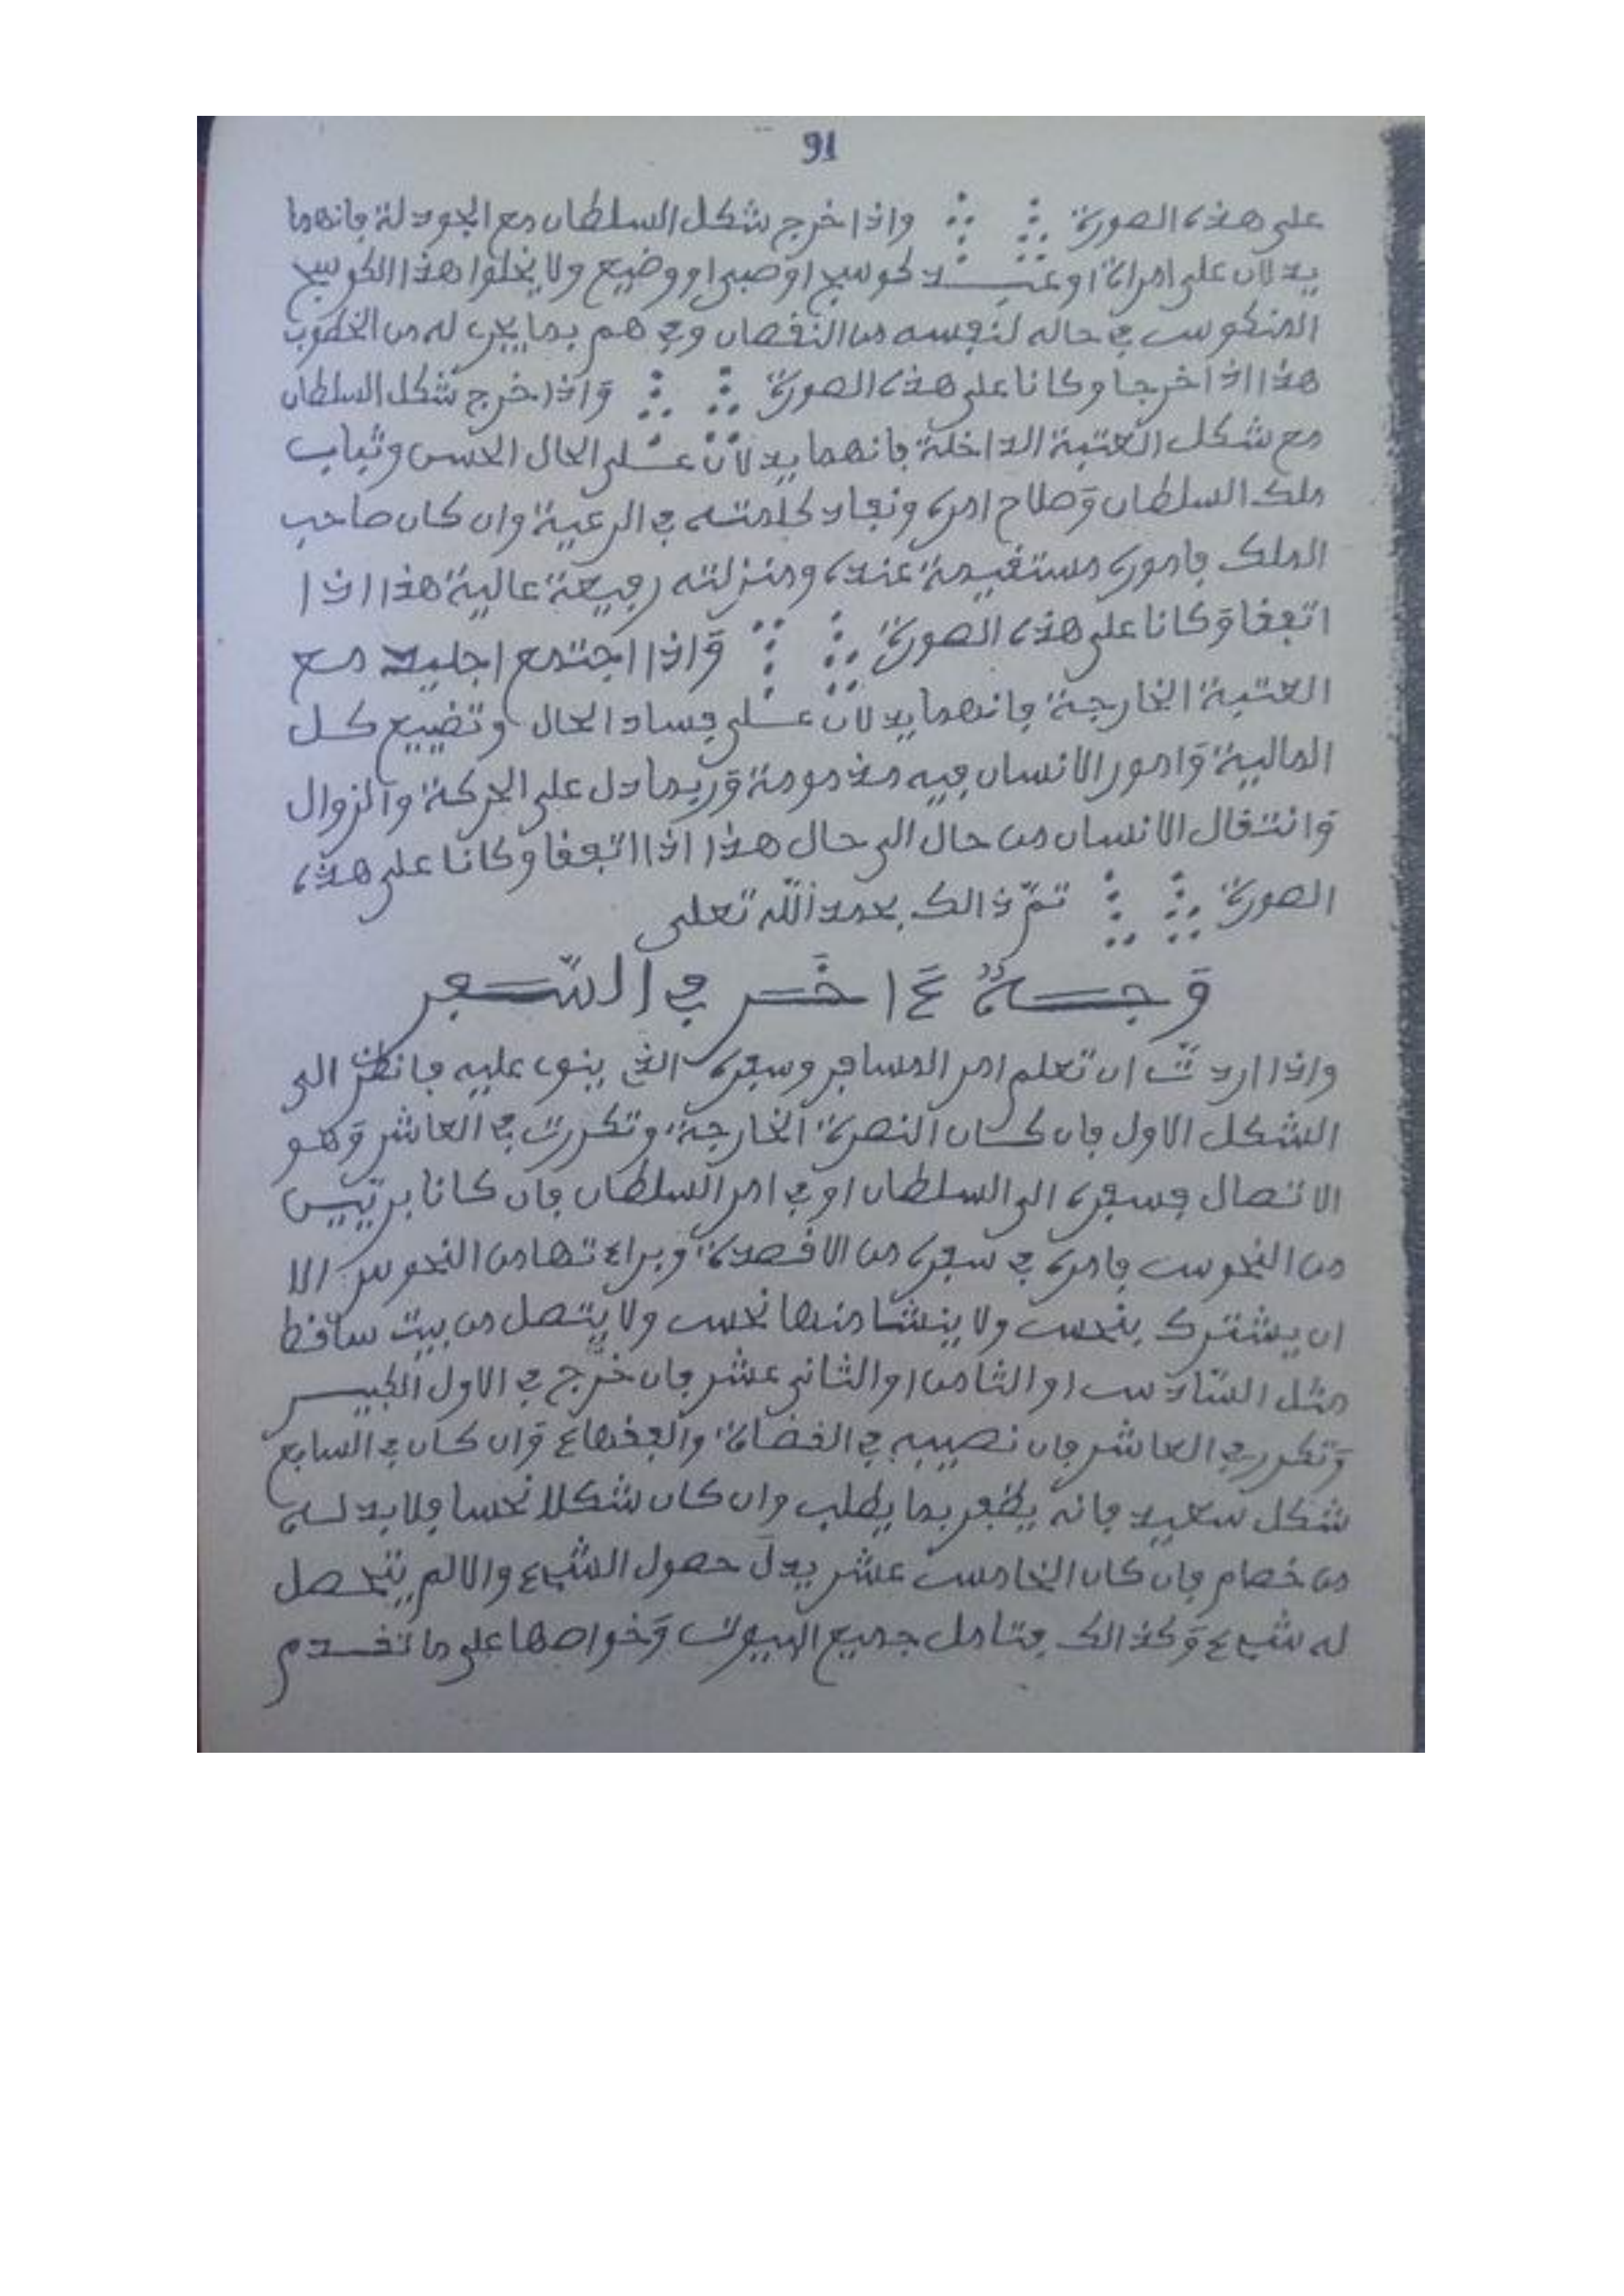 91
على هذه الصورة واذا خرج شكل السلطان مع الجودلة فانهما
يدلان على امراة او عبد كوسج او صبى او وضيع ولا يخلوا هذا الكوسج
المنكوس في حاله لنفسه من النقصان وفي هم بما يجرى له من الخطوب
هذا اذا خرجا وكانا على هذه الصورة واذا خرج شكل السلطان
مع شكل العتبة الداخلة فانهما يدلان على الحال الحسن وثبات
ملك السلطان وصلاح امره ونفاد كلمته في الرعية وان كان صاحب
الملك فاموره مستقيمة عنده ومنزلته رفيعة عالية هذا اذا
اتفقا وكانا على هذه الصورة واذا اجتمع اجليد مع
العتبة الخارجة فانهما يدلان على فساد الحال وتضييع كل
المالية وامور الانسان فيه مذمومة وربما دل على الحركة والزوال
وانتقال الانسان من حال الى حال هذا اذا اتفقا وكانا على هذه
الصورة تمّ ذالك بحمد الله تعلى
وَجــهٌ ءَاخَر في السّفر
واذا اردتّ ان تعلم امر المسافر وسفره الذى ينوى عليه فانظر الى
الشكل الاول فان كان النصرة الخارجة وتكررت في العاشر وهو
الاتصال فسفره الى السلطان او في امر السلطان فان كانا بريّيس
من النحوس فامره في سفره من الاقصدة وبراءتها من النحوس الا
ان يشترك بنحس ولا ينشا منها نحس ولا يتصل من بيت ساقط
مثل السّادس او الثامن او الثانى عشر فان خرج في الاول الكبير
وتكرر في العاشر فان نصيبه في القضاة والفقهاء وان كان في السابع
شكل سعيد فانه يظفر بما يطلب وان كان شكلا نحسا فلابد له
من خصام فان كان الخامس عشر يدلّ حصول الشىء والا لم يتحصل
له شىء وكذالك فتامل جميع البيوت وخواصها على ما تقدم